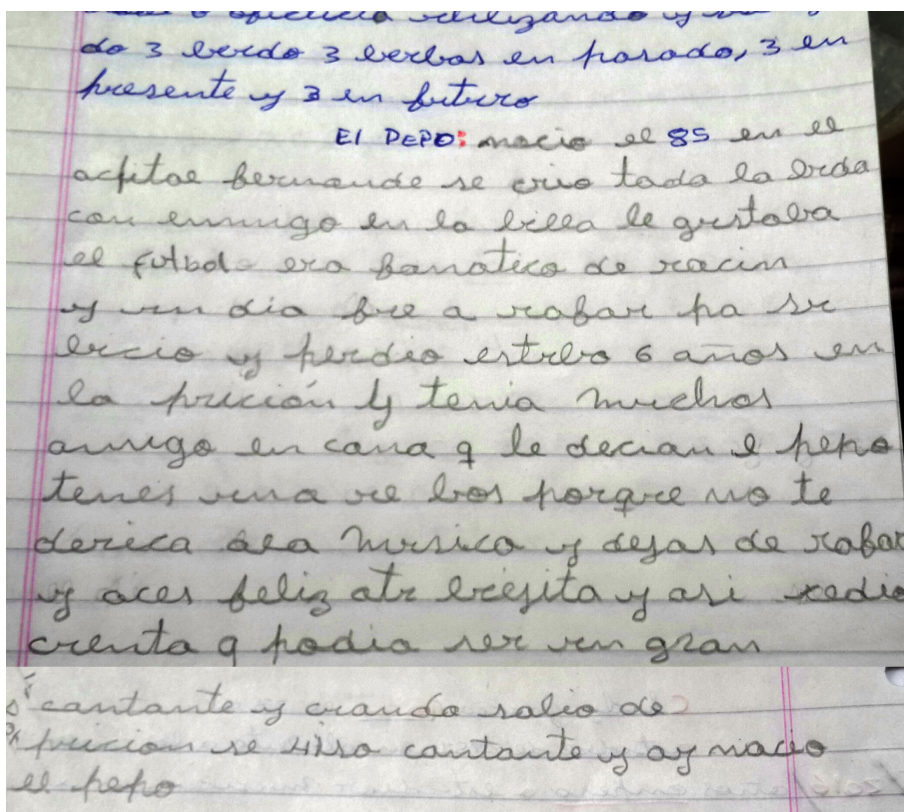 utilizando y su
do 3 berdo 3 verbos en pasado, 3 en
presente y 3 en futuro
El PEPO: nacio el 85 en el
acpital bernande se crio toda la bida
con enmigo en la billa le gustaba
el futbol era fanatico de racin
y un dia fue a robar pa su
bicio y perdio estubo 6 años en
la prición y tenia muchos
amigo en cana q le decian e pepo
tenes una re bos porque no te
derica ala musica y dejas de robar
y aces feliz atu biejita y asi redio
cuenta q podia ser un gran
cantante y cuando salio de
pricion se hiso cantante y ay nacio
el pepo